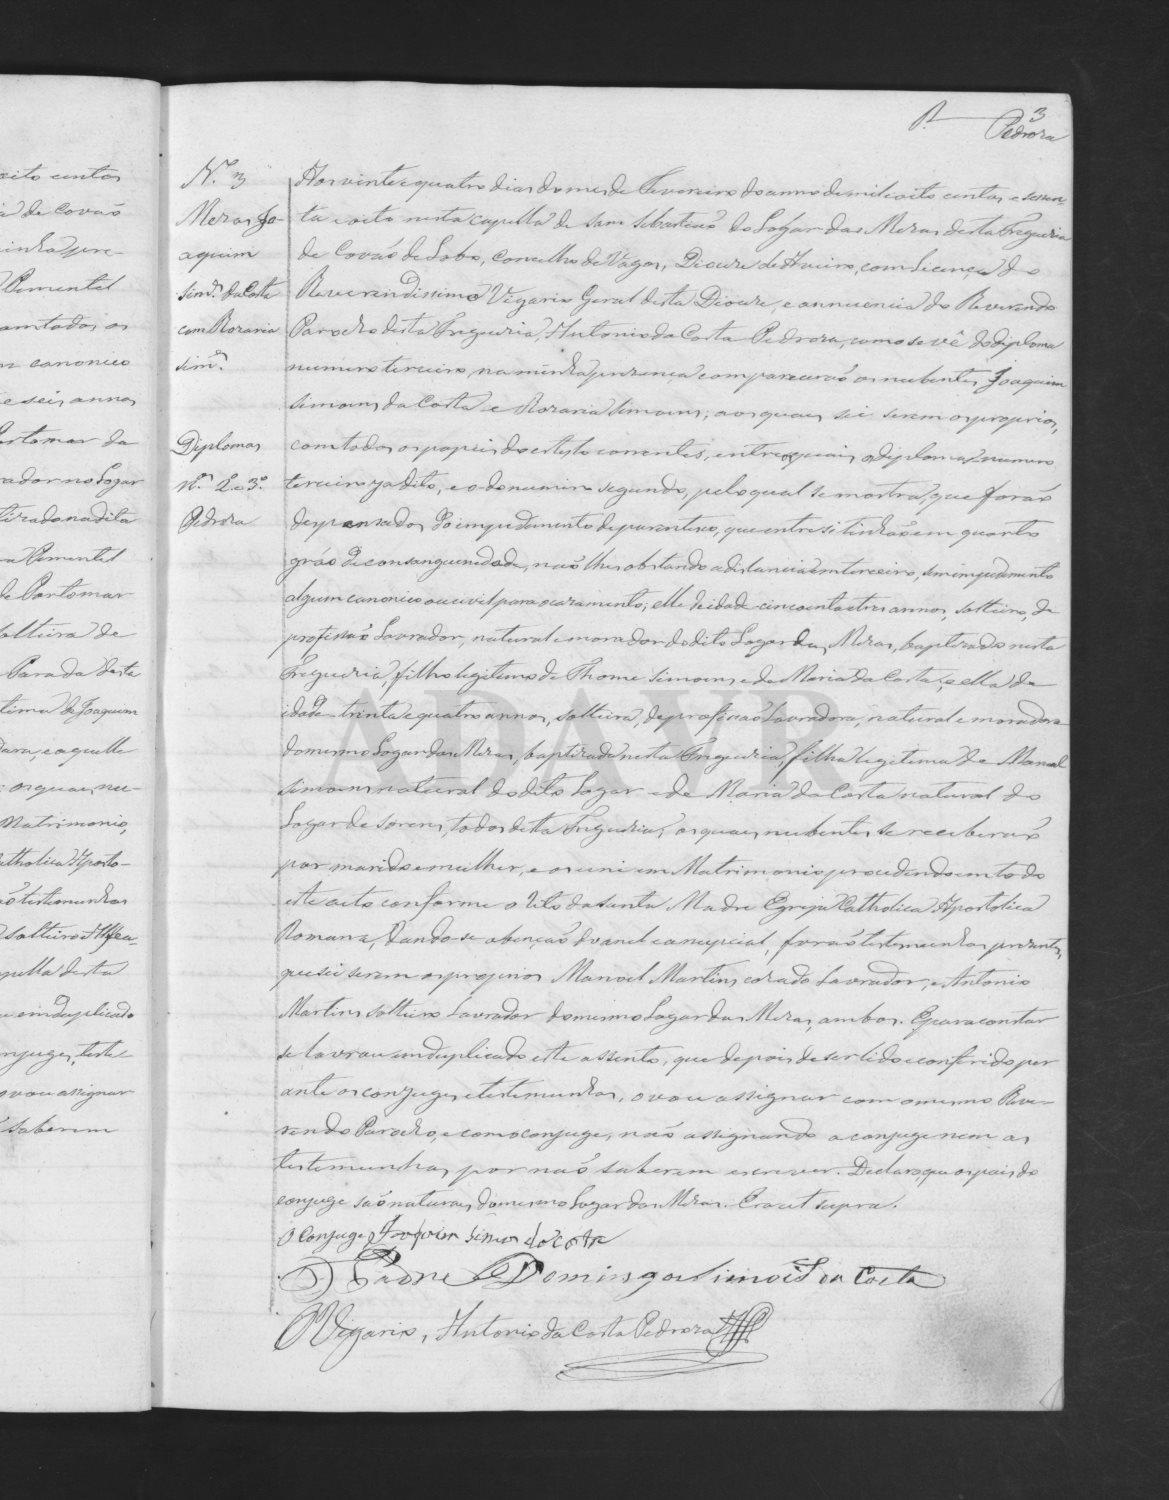 3
Pedroza
N.º 3
Mezas Jo-
aquim
Sim.s da Costa
com Rozaria
Sim.s
Diplomas
N.os 2. e 3.º
Pedroza
Aos vinte e quatro dias do mes de Fevereiro do anno de mil e oito centos e sessen
ta e oito nesta capella de Sam Sebastiaõ do Logar das Mezas desta Freguezia
de Covaõ de Lobo, Concelho de Vagos, Diocese de Aveiro, com licença do
Reverendissimo Vigario Geral desta Diocese, e annuencia do Reverendo
Parocho desta Freguezia, Antonio da Costa Pedroza, como se vê do diploma
numero terceiro, na minha prezença comparecerаõ os nubentes Joaquim
Simoens da Costa e Rozaria Simoens; aos quaes sei serem os proprios,
com todos os papeis do estylo correntes, entre os quaes o diploma numero
terceiro ja dito, e o do numero segundo, pelo qual se mostra, que foraõ
despensados do impedimento de parentesco, que entre si tinhaõ em quarto
gráo de consanguinedade, naõ lhes obstando a distancia em terceiro, sem impedimento
algum canonico ou civil para o cazamento; elle de idade cincoenta e tres annos, solteiro, de
profissaõ Lavrador, natural e morador do dito Logar das Mezas, baptizado nesta
Freguezia, filho legitimo de Thome Simoens e de Maria da Costa, e ella de
idade trinta e quatro annos, solteira, de profissaõ Lavradora, natural e moradora
do mesmo Logar das Mezas, baptizada nesta Freguezia, filha legitima de Manoel
Simoens natural do dito Logar e de Maria da Costa natural do
Logar de Sorens, todos desta Freguezia, os quaes nubentes se receberaõ
por marido e mulher, e os uni em Matrimonio procedendo em todo
este acto conforme o rito da Santa Madre Egreja Catholica Apostolica
Romana, dando-se a bençaõ do anel e a nupcial, foraõ testemunhas prezentes,
que sei serem os proprios Manoel Martins cazado Lavrador, e Antonio
Martins solteiro Lavrador do mesmo Logar das Mezas, ambos. E para constar
se lavrou em duplicado este assento, que depois de ser lido e conferido per
ante os conjuges e testemunhas, o vou assignar com o mesmo Reve-
rendo Parocho, e com o conjuge, naõ assignando a conjuge nem as
testemunhas por naõ saberem escrever. Declaro, que os pais do
conjuge saõ naturaes do mesmo Logar das Mezas. Era ut supra.
O Conjuge, Joaquim Simois da Costa
O Padre Domingos Simois da Costa
O Vigario, Antonio da Costa Pedroza